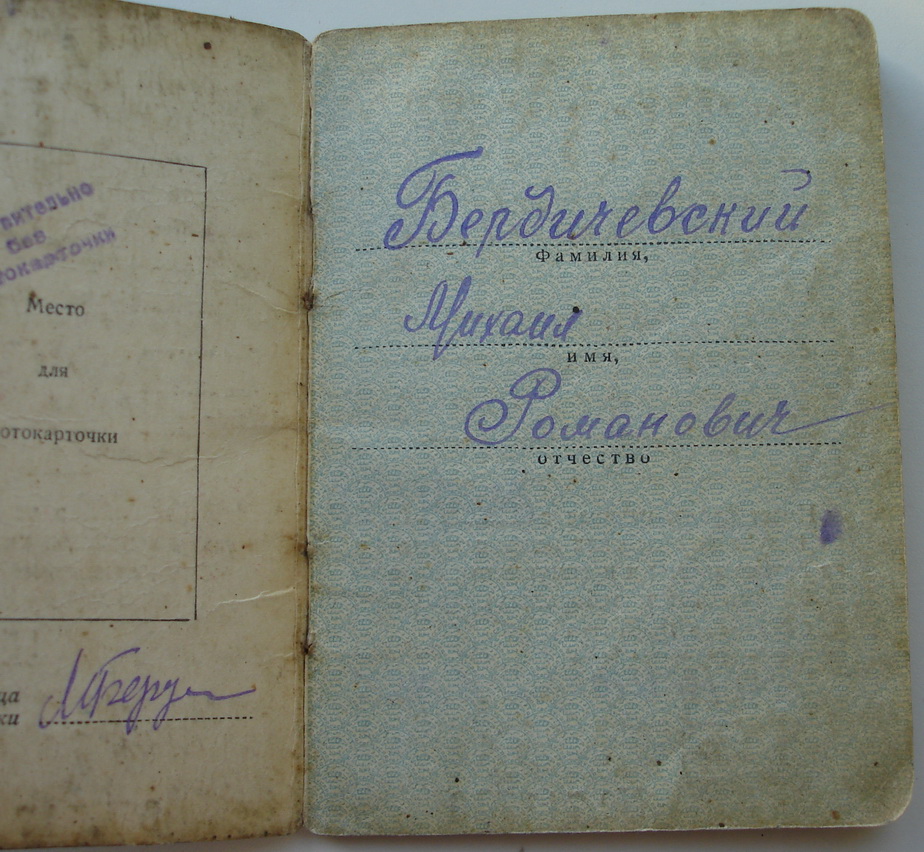 вительно
без
токарточки
Место
для
отокарточки
ца
ки
Бердичевский
Фамилия,
Михаил
имя,
Романович
отчество